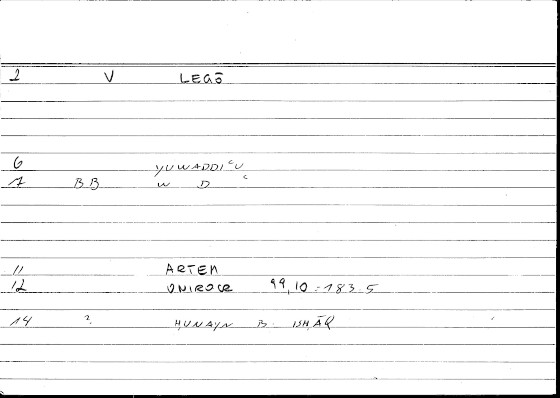 1 V LEGŌ
6 YUWADDIʿU
7 BB W D ʿ
11 ARTEM
12 ONIROCR 99,10 = 183.5
14 ? ḤUNAYN B. ISḤĀQ